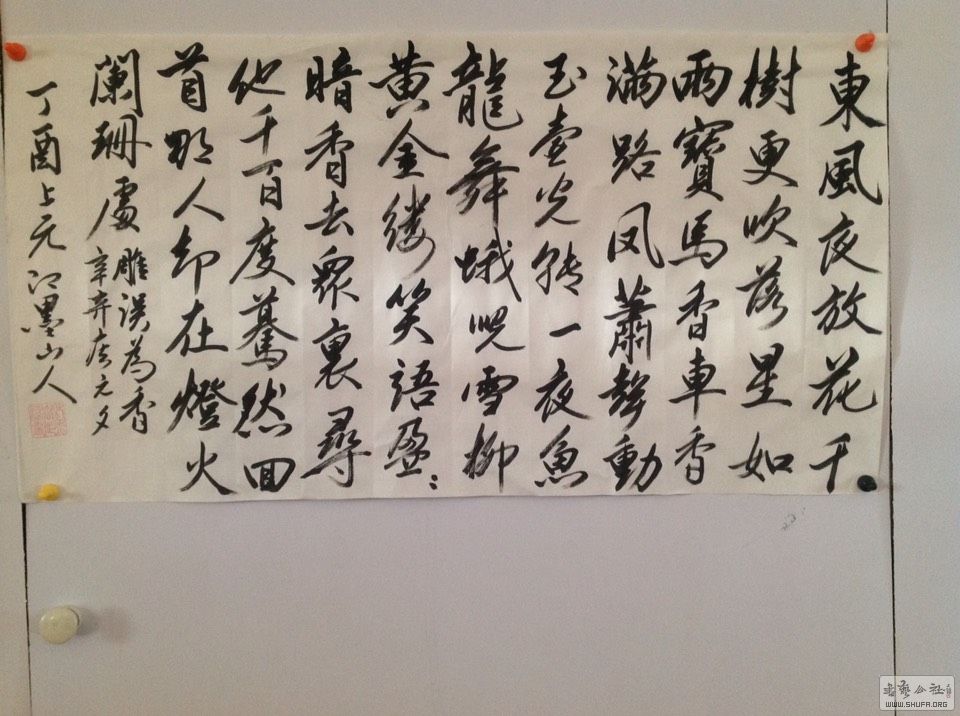 東風夜放花千
樹更吹落星如
雨寶馬香車香
满路凤蕭聲動
玉壺光转一夜魚
龍舞蛾兒雪柳
黄金缕笑語盈:
暗香去眾裏尋
他千百度驀然回
首那人却在燈火
闌珊處
雕误為香
辛弃疾元夕
丁酉上元江墨山人
書藝公社
WWW.SHUFA.ORG